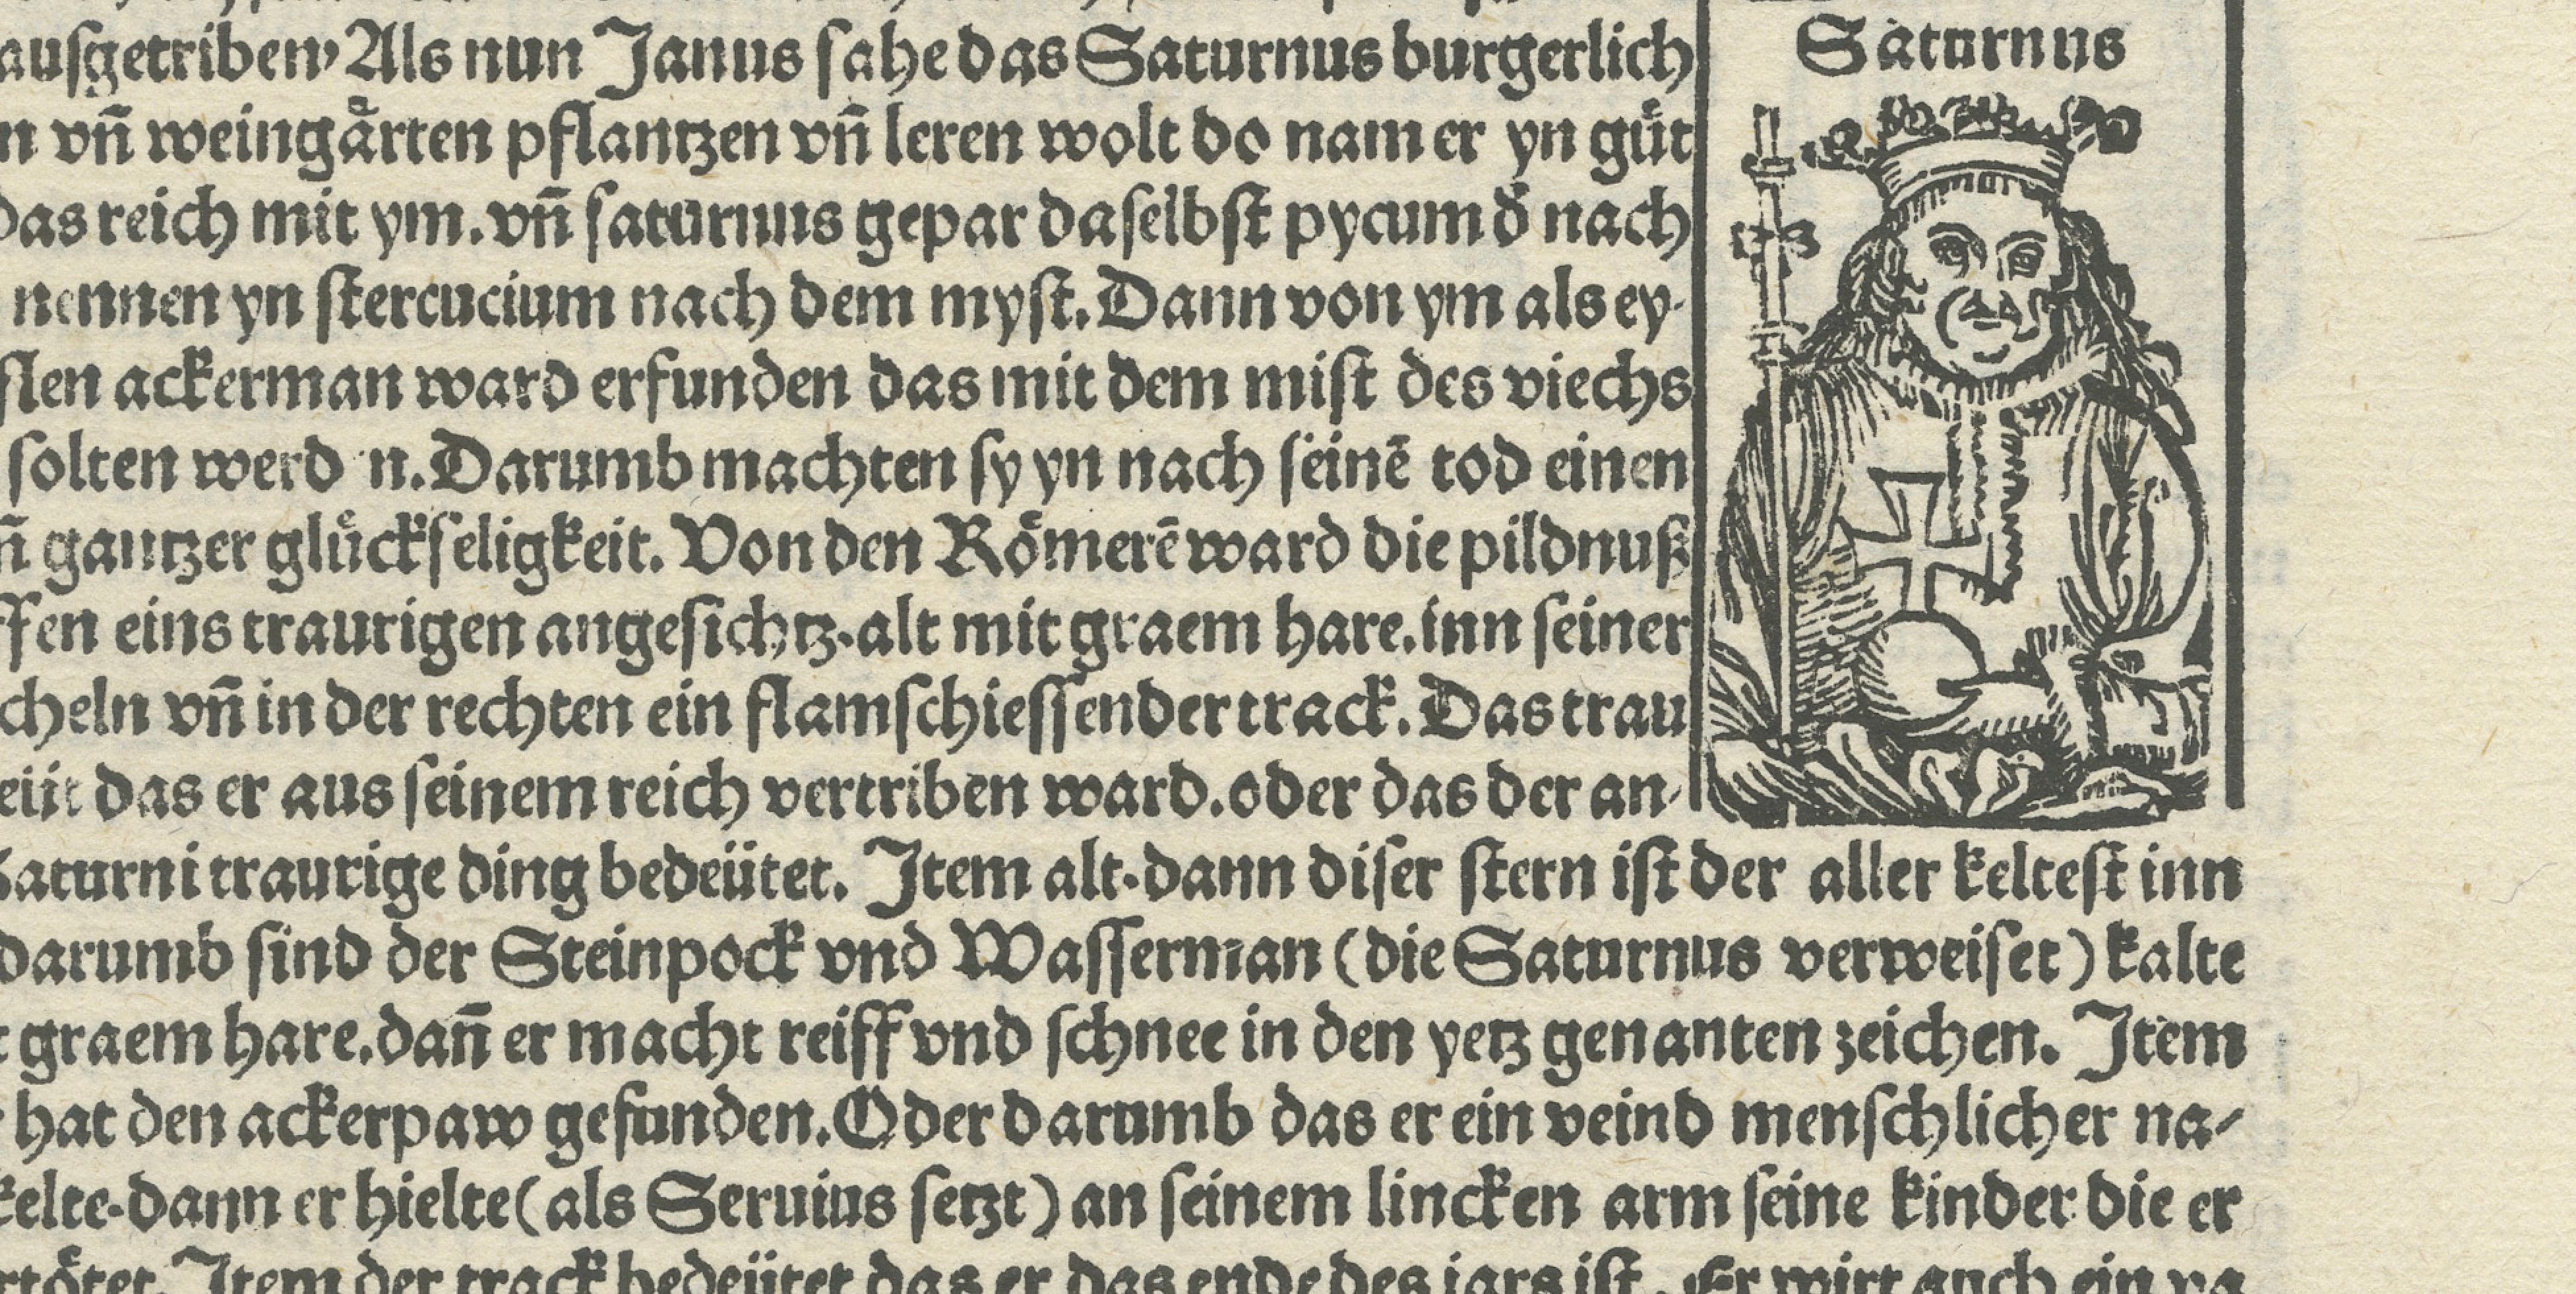 Saturnus
ausgetriben, Als nun Janus sahe das Saturnus burgerlich
n vñ weingaͤrten pflantzen vñ leren wolt do nam er yn guͤt
das reich mit ym. vñ saturnus gepar daselbst pycum d̕ nach
nennen yn stercucium nach dem myst. Dann von ym als ey-
slen ackerman ward erfunden das mit dem mist des viechs
solten werd n. Darumb machten sy yn nach seinē tod einen
ñ gantzer gluͤckseligkeit. Von den Roͤmerē ward die pildnuß
ffen eins traurigen angesichtz. alt mit graem hare. inn seiner
cheln vñ in der rechten ein flamschiessender track. Das trau
eüt das er aus seinem reich vertriben ward. oder das der an-
Saturni traurige ding bedeütet. Item alt. dann diser stern ist der aller keltest inn
darumb sind der Steinpock vnd Wasserman (die Saturnus verweiset) kalte
t graem hare. dañ er macht reiff vnd schnee in den yetz genanten zeichen. Item
hat den ackerpaw gefunden. Oder darumb das er ein veind menschlicher na-
kelte. dann er hielte (als Seruius setzt) an seinem lincken arm seine kinder die er
rtoͤtet. Item der track bedeütet das er das ende des iars ist. Er wirt auch ein va